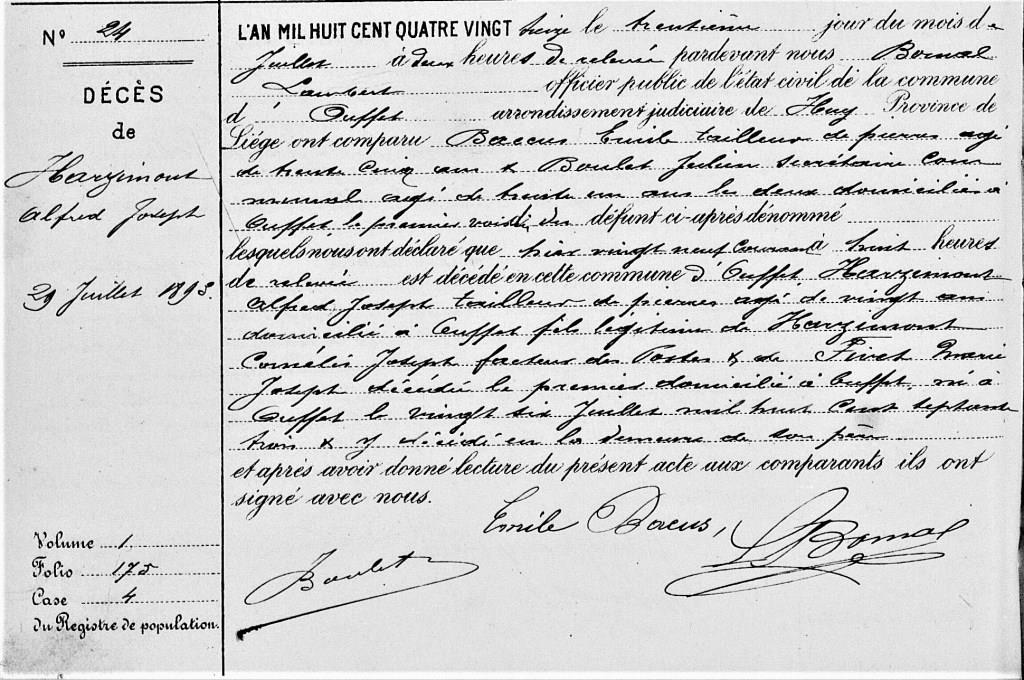 N° 24
DÉCÈS
de
Harzimont
Alfred Joseph
29 Juillet 1893.
Volume 1
Folio 175
Case 4
du Registre de population.
L'AN MIL HUIT CENT QUATRE VINGT treize le trentième jour du mois de
Juillet à deux heures de relevée pardevant nous Bomal
Lambert officier public de l'état civil de la commune
d' Ouffet arrondissement judiciaire de Huy Province de
Liége ont comparu Baccus Emile tailleur de pierres agé
de trente cinq ans & Boulet Julien secrétaire com
munal agé de trente un ans les deux domiciliés à
Ouffet le premier voisin du défunt ci-après dénommé
lesquels nous ont déclaré que hier vingt neuf courant à huit heures
de relevée est décédé en cette commune d' Ouffet Harzimont
Alfred Joseph tailleur de pierres agé de vingt ans
domicilié à Ouffet fils légitime de Harzimont
Cornélis Joseph facteur des Postes & de Fivet Marie
Joseph décédée le premier domicilié à Ouffet, né à
Ouffet le vingt six Juillet mil huit cent septante
trois & y décédé en la demeure de son père
et après avoir donné lecture du présent acte aux comparants ils ont
signé avec nous.
Emile Bacus, LBomal
Boulet